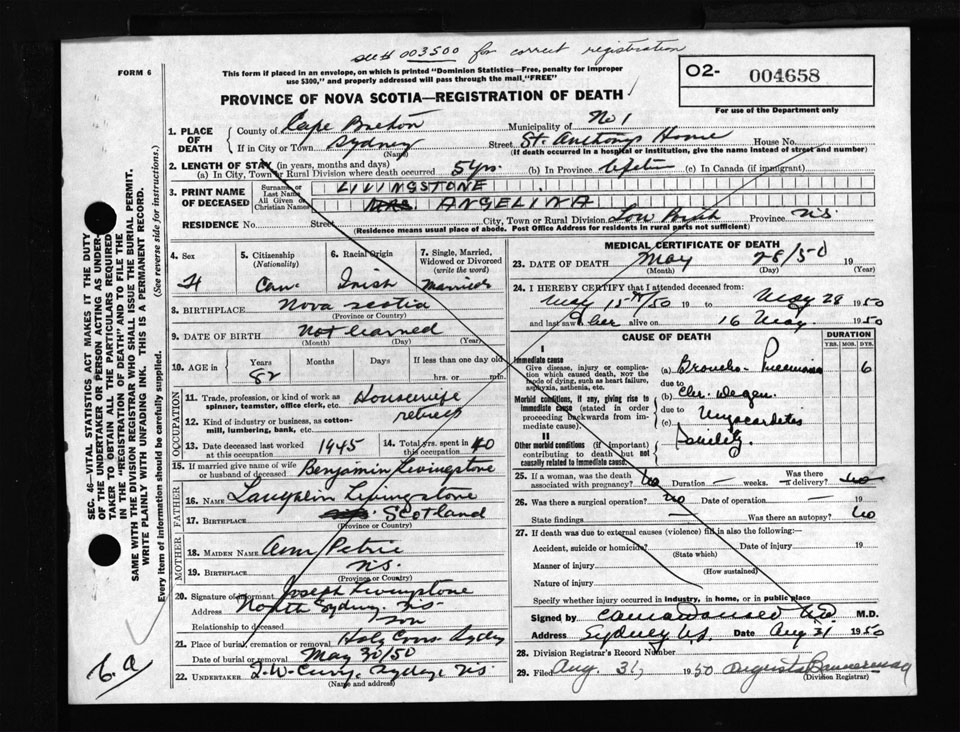 See # 003500 for correct registration
FORM 6
This form if placed in an envelope, on which is printed "Dominion Statistics—Free, penalty for improper
use $300," and properly addressed will pass through the mail "FREE"
02- 004658
For use of the Department only
PROVINCE OF NOVA SCOTIA—REGISTRATION OF DEATH
1. PLACE OF DEATH { County of Cape Breton Municipality of No 1
If in City or Town Sydney (Name) Street St. Anthony Home House No.
(If death occurred in a hospital or institution, give the name instead of street and number)
2. LENGTH OF STAY (in years, months and days)
(a) In City, Town or Rural Division where death occurred 5 yrs. (b) In Province Life (c) In Canada (if immigrant)
3. PRINT NAME OF DECEASED { Surname or Last Name LIVINGSTONE
All Given or Christian Names MRS. ANGELINA
RESIDENCE No. Street City, Town or Rural Division Low Province N.S.
(Residence means usual place of abode. Post Office Address for residents in rural parts not sufficient)
4. Sex F
5. Citizenship (Nationality) Can
6. Racial Origin Irish
7. Single, Married, Widowed or Divorced (write the word) Married
8. BIRTHPLACE Nova Scotia
(Province or Country)
9. DATE OF BIRTH Not learned
(Month) (Day) (Year)
10. AGE in { Years 82 Months Days If less than one day old hrs. or min.
OCCUPATION
11. Trade, profession, or kind of work as spinner, teamster, office clerk, etc. Housewife
12. Kind of industry or business, as cotton-mill, lumbering, bank, etc. retired
13. Date deceased last worked at this occupation 1945 14. Total yrs. spent in this occupation 40
15. If married give name of wife or husband of deceased Benjamin Livingstone
FATHER
16. NAME Laughlin Livingstone
17. BIRTHPLACE Scotland
(Province or Country)
MOTHER
18. MAIDEN NAME Ann Petrie
19. BIRTHPLACE N.S.
(Province or Country)
20. Signature of informant Joseph Livingstone
Address North Sydney N.S.
Relationship to deceased son
21. Place of burial, cremation or removal Holy Cross Sydney
Date of burial or removal May 30/50
22. UNDERTAKER Sydney, N.S.
(Name and address)
MEDICAL CERTIFICATE OF DEATH
23. DATE OF DEATH May 28/50 19
(Month) (Day) (Year)
24. I HEREBY CERTIFY that I attended deceased from:
May 15th/50 19 to May 28 1950
and last saw her alive on 16 May. 1950
CAUSE OF DEATH DURATION
YRS. MOS. DYS.
I
Immediate cause
Give disease, injury or complication which caused death, not the mode of dying, such as heart failure, asphyxia, asthenia, etc.
(a) Broncho-Pneumonia 6
due to
Morbid conditions, if any, giving rise to immediate cause (stated in order proceeding backwards from immediate cause).
(b) Chr. Degen.
due to
(c) Myocarditis
II
Other morbid conditions (if important) contributing to death but not causally related to immediate cause.
Senility.
25. If a woman, was the death associated with pregnancy? No Duration — weeks. Was there a delivery? No
26. Was there a surgical operation? No Date of operation — 19
State findings — Was there an autopsy? No
27. If death was due to external causes (violence) fill in also the following:—
Accident, suicide or homicide? Date of injury 19
(State which)
Manner of injury
(How sustained)
Nature of injury
Specify whether injury occurred in industry, in home, or in public place
Signed by M.D.
Address Sydney N.S. Date Aug 31 1950
28. Division Registrar's Record Number
29. Filed Aug. 31, 1950 Bannerman
(Division Registrar)
SEC. 46—VITAL STATISTICS ACT MAKES IT THE DUTY
OF THE UNDERTAKER OR PERSON ACTING AS UNDER-
TAKER TO OBTAIN ALL THE PARTICULARS REQUIRED
IN THE "REGISTRATION OF DEATH" AND TO FILE THE
SAME WITH THE DIVISION REGISTRAR WHO SHALL ISSUE THE BURIAL PERMIT.
WRITE PLAINLY WITH UNFADING INK. THIS IS A PERMANENT RECORD.
Every item of information should be carefully supplied. (See reverse side for instructions.)